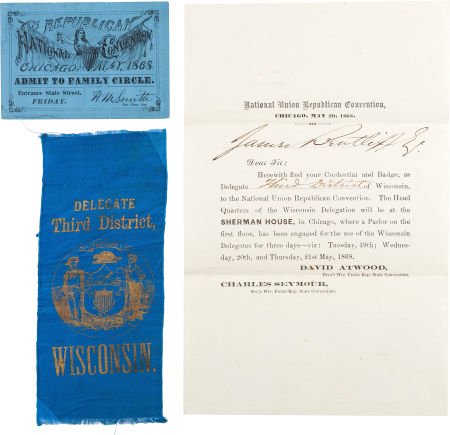 REPUBLICAN
NATIONAL CONVENTION
CHICAGO, MAY, 1868.
ADMIT TO FAMILY CIRCLE.
Entrance State Street.
FRIDAY.
DELEGATE
Third District,
WISCONSIN.
National Union Republican Convention,
CHICAGO, MAY 20, 1868.
James Bintliff Esq.
Dear Sir:
Herewith find your Credential and Badge, as
Delegate Third District of Wisconsin,
to the National Union Republican Convention. The Head
Quarters of the Wisconsin Delegation will be at the
SHERMAN HOUSE, in Chicago, where a Parlor on the
first floor, has been engaged for the use of the Wisconsin
Delegates for three days—viz: Tuesday, 19th; Wednes-
day, 20th, and Thursday, 21st May, 1868.
DAVID ATWOOD,
Pres't Wis. Union Rep. State Convention.
CHARLES SEYMOUR,
Sec'y Wis. Union Rep. State Convention.